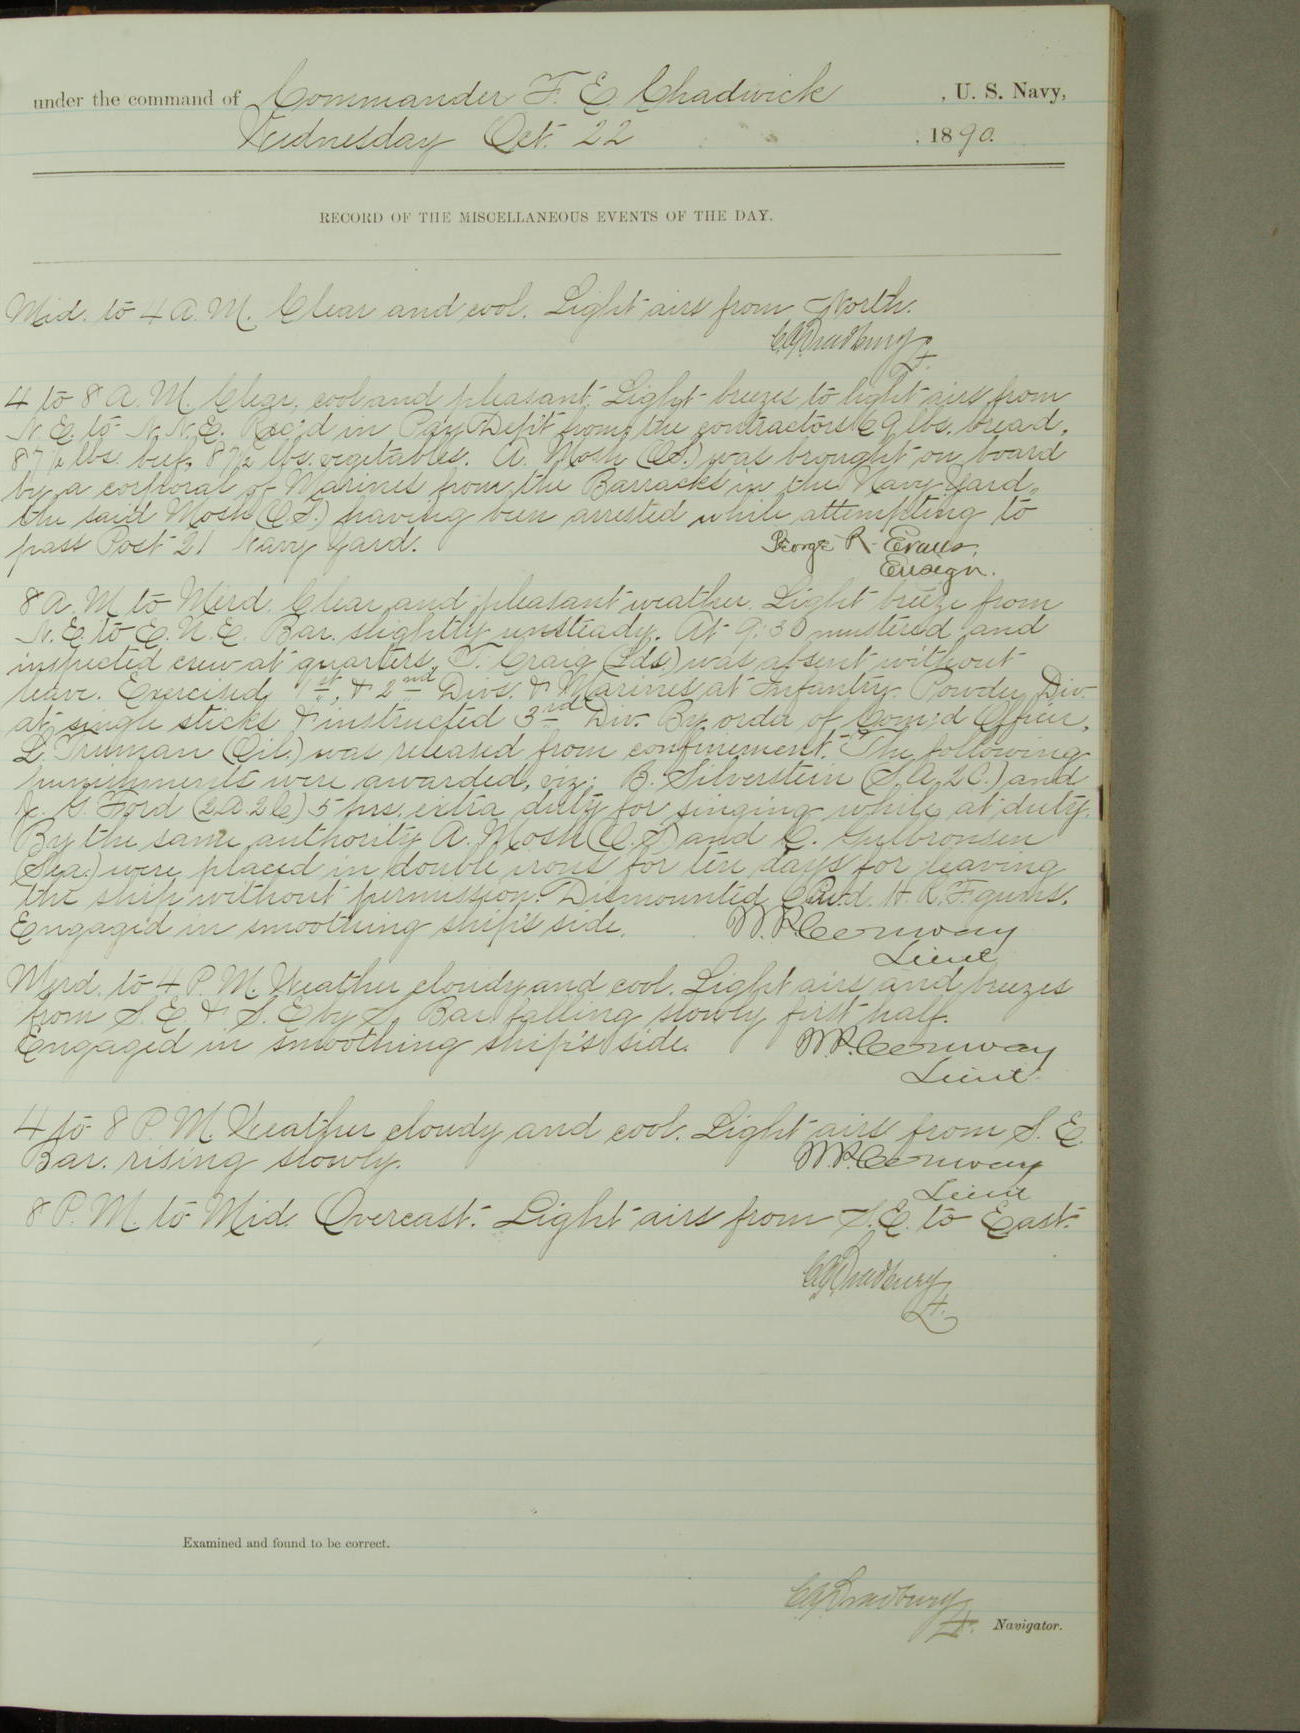 under the command of Commander F. E. Chadwick, U. S. Navy,
Wednesday Oct. 22, 1890.
RECORD OF THE MISCELLANEOUS EVENTS OF THE DAY.
Mid. to 4 A.M. Clear and cool. Light airs from North.
C. G. Bradbury
Lt.
4 to 8 A.M. Clear, cool and pleasant. Light breezes to light airs from
N.E. to N.N.E. Rec'd in Pay Dep't from the contractors 69 lbs. bread,
87 1/2 lbs. beef, 87 1/2 lbs. vegetables. A. Mosh (O.S.) was brought on board
by a corporal of Marines from the Barracks in the Navy Yard,
the said Mosh (O.S.) having been arrested while attempting to
pass Post 21 Navy Yard.
George R. Evans,
Ensign.
8 A.M. to Merd. Clear and pleasant weather. Light breeze from
N.E. to E.N.E. Bar. slightly unsteady. At 9:30 mustered and
inspected crew at quarters. T. Craig (Lds) was absent without
leave. Exercised 1st, & 2nd Divs. & Marines at Infantry. Powder Div.
at single sticks & instructed 3rd Div. By order of Com'd Officer,
L. Truman (Oil.) was released from confinement. The following
punishments were awarded, viz; B. Silverstein (S.A. 2C.) and
G. Ford (2.A. 2C) 5 hrs. extra duty for singing while at duty.
By the same authority A. Mosh (O.S) and C. Gulbronsen
(Sea.) were placed in double irons for ten days for leaving
the ship without permission. Dismounted H. R. F. guns.
Engaged in smoothing ship's side.
W. P. Conway
Lieut
Merd. to 4 P.M. Weather cloudy and cool. Light airs and breezes
from S.E. & S.E. by S. Bar. falling slowly first half.
Engaged in smoothing ship's side.
W. P. Conway
Lieut.
4 to 8 P.M. Weather cloudy and cool. Light airs from S.E.
Bar. rising slowly.
W. P. Conway
Lieut
8 P.M. to Mid. Overcast. Light airs from S.E. to East.
C. G. Bradbury
Lt.
Examined and found to be correct.
C. G. Bradbury
Lt. Navigator.